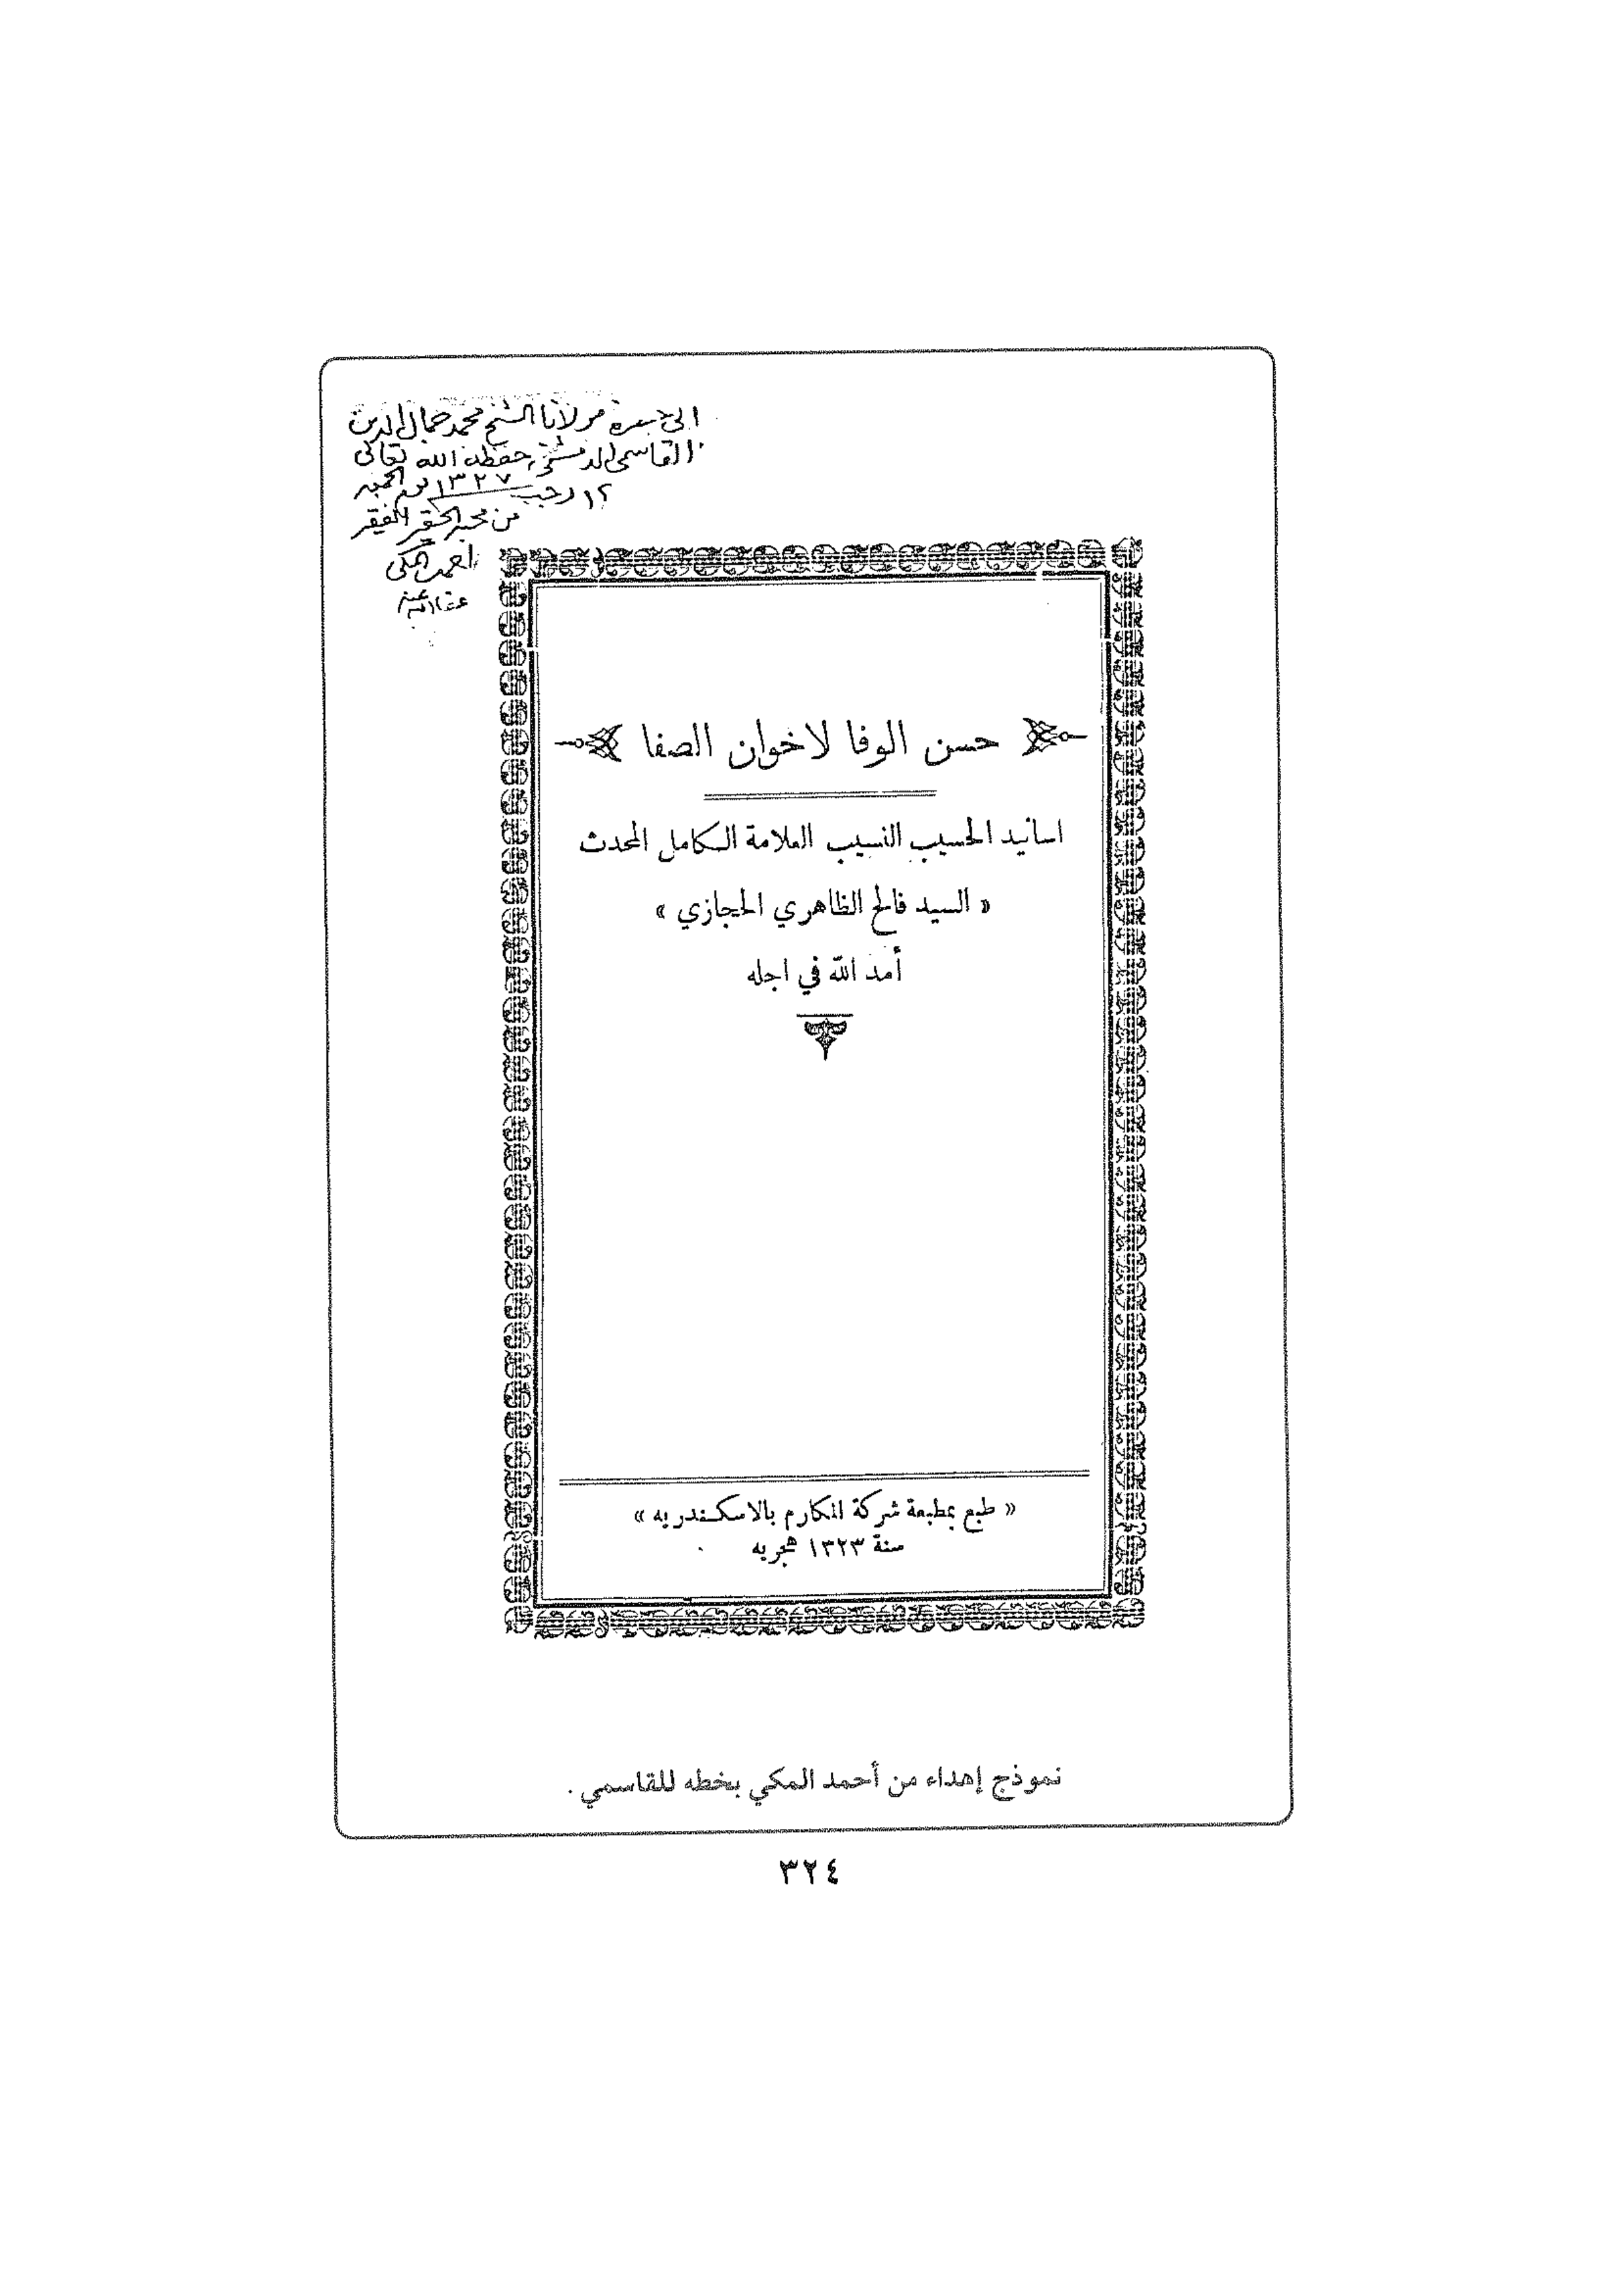 الى حضرة مولانا الشيخ محمد جمال الدين
القاسمي الدمشقي حفظه الله تعالى
١٢ رجب ١٣٢٧ يوم الجمعة
من محبه الحقير الفقير
احمد المكي
عفا الله عنه
حسن الوفا لاخوان الصفا
اسانيد الحسيب النسيب العلامة الكامل المحدث
« السيد فالح الظاهري الحجازي »
أمد الله في اجله
« طبع بمطبعة شركة المكارم بالاسكندريه »
سنة ١٣٢٣ هجريه
نموذج إهداء من أحمد المكي بخطه للقاسمي .
٣٢٤